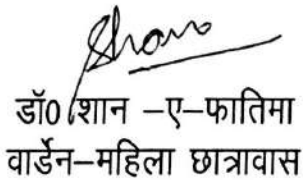 डॉ0 शान –ए–फातिमा
वार्डेन–महिला छात्रावास